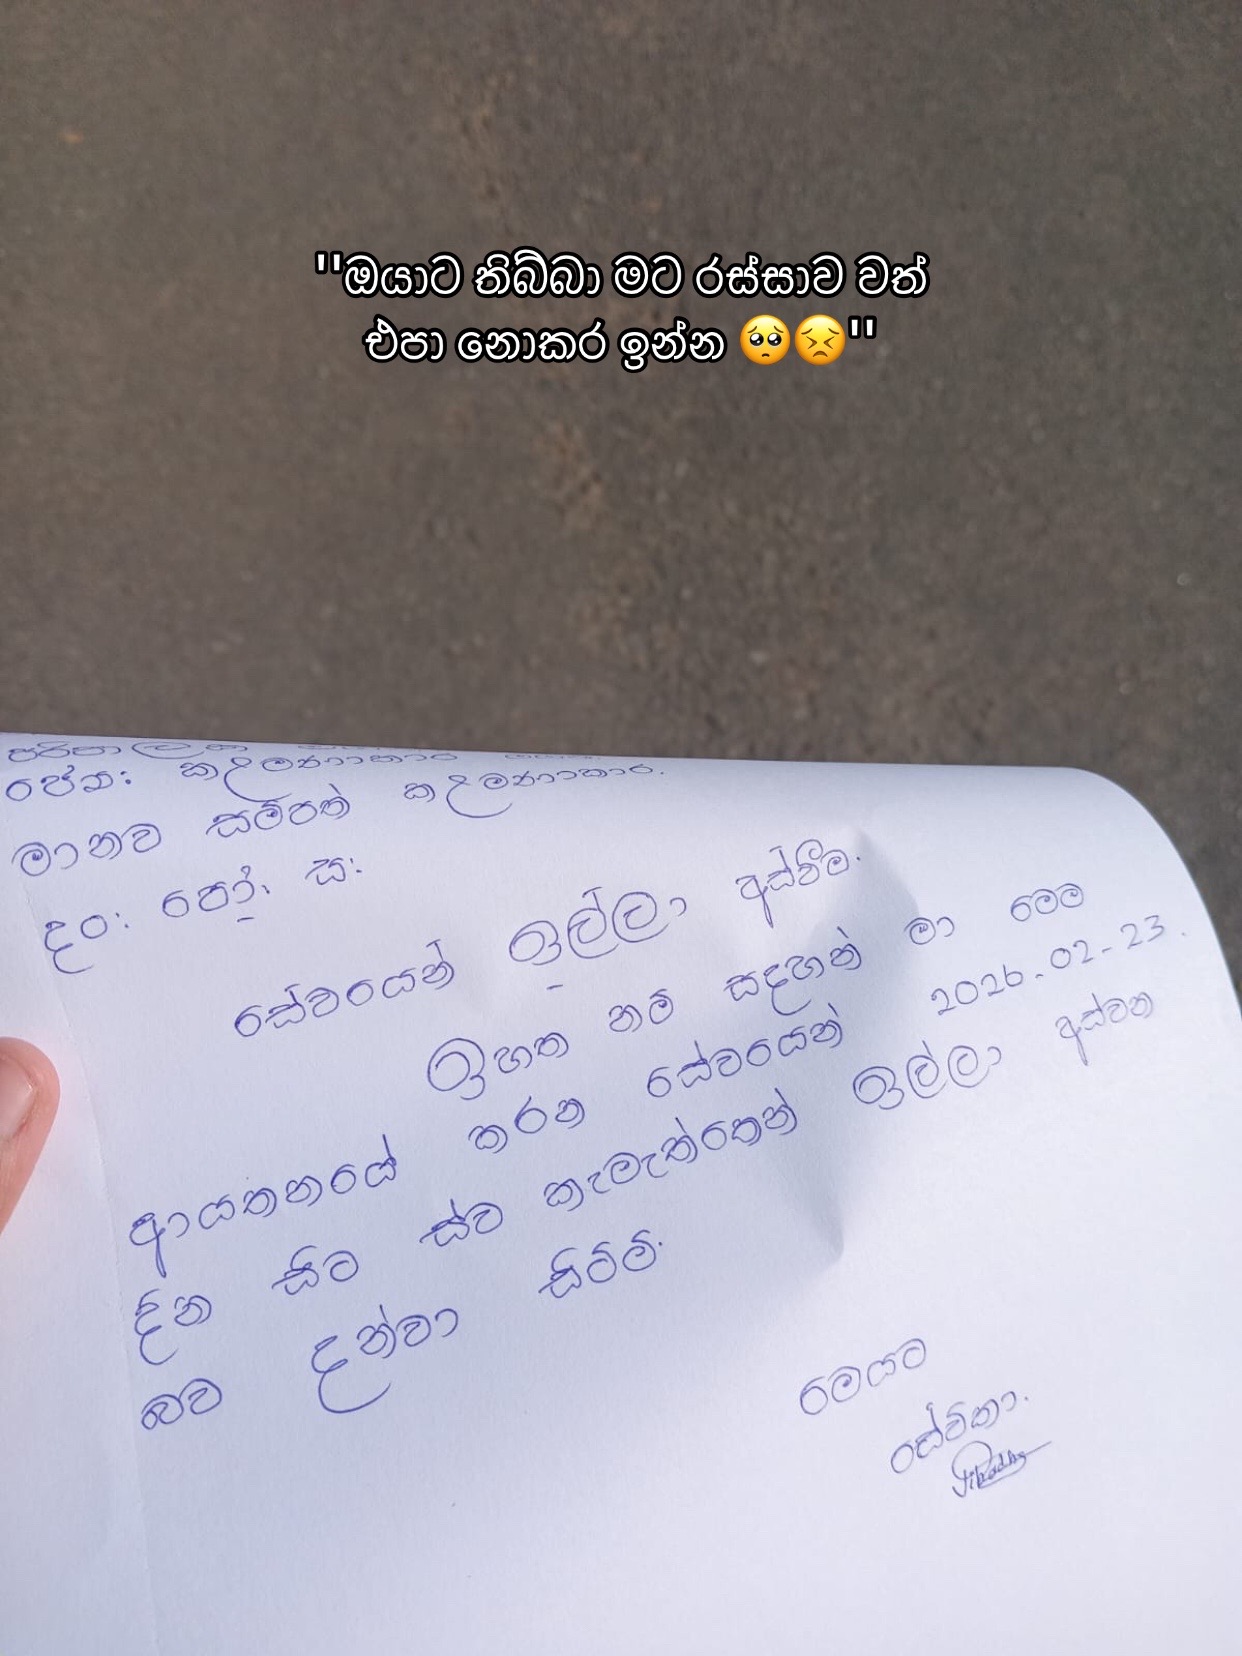 "ඔයාට තිබ්බා මට රස්සාව වත්
එපා නොකර ඉන්න 🥺😣"
පරිපාලන
පේන: කළමණාකාර
මානව සම්පත් කළමණාකාර.
දං: පෝ. ස:
සේවයෙන් ඉල්ලා අස්වීම.
ඉහත නම් සදහන් මා මෙම
ආයතනයේ කරන සේවයෙන් 2026-02-23.
දින සිට ස්ව කැමැත්තෙන් ඉල්ලා අස්වන
බව දන්වා සිටිමි.
මෙයට
සේවිකා.